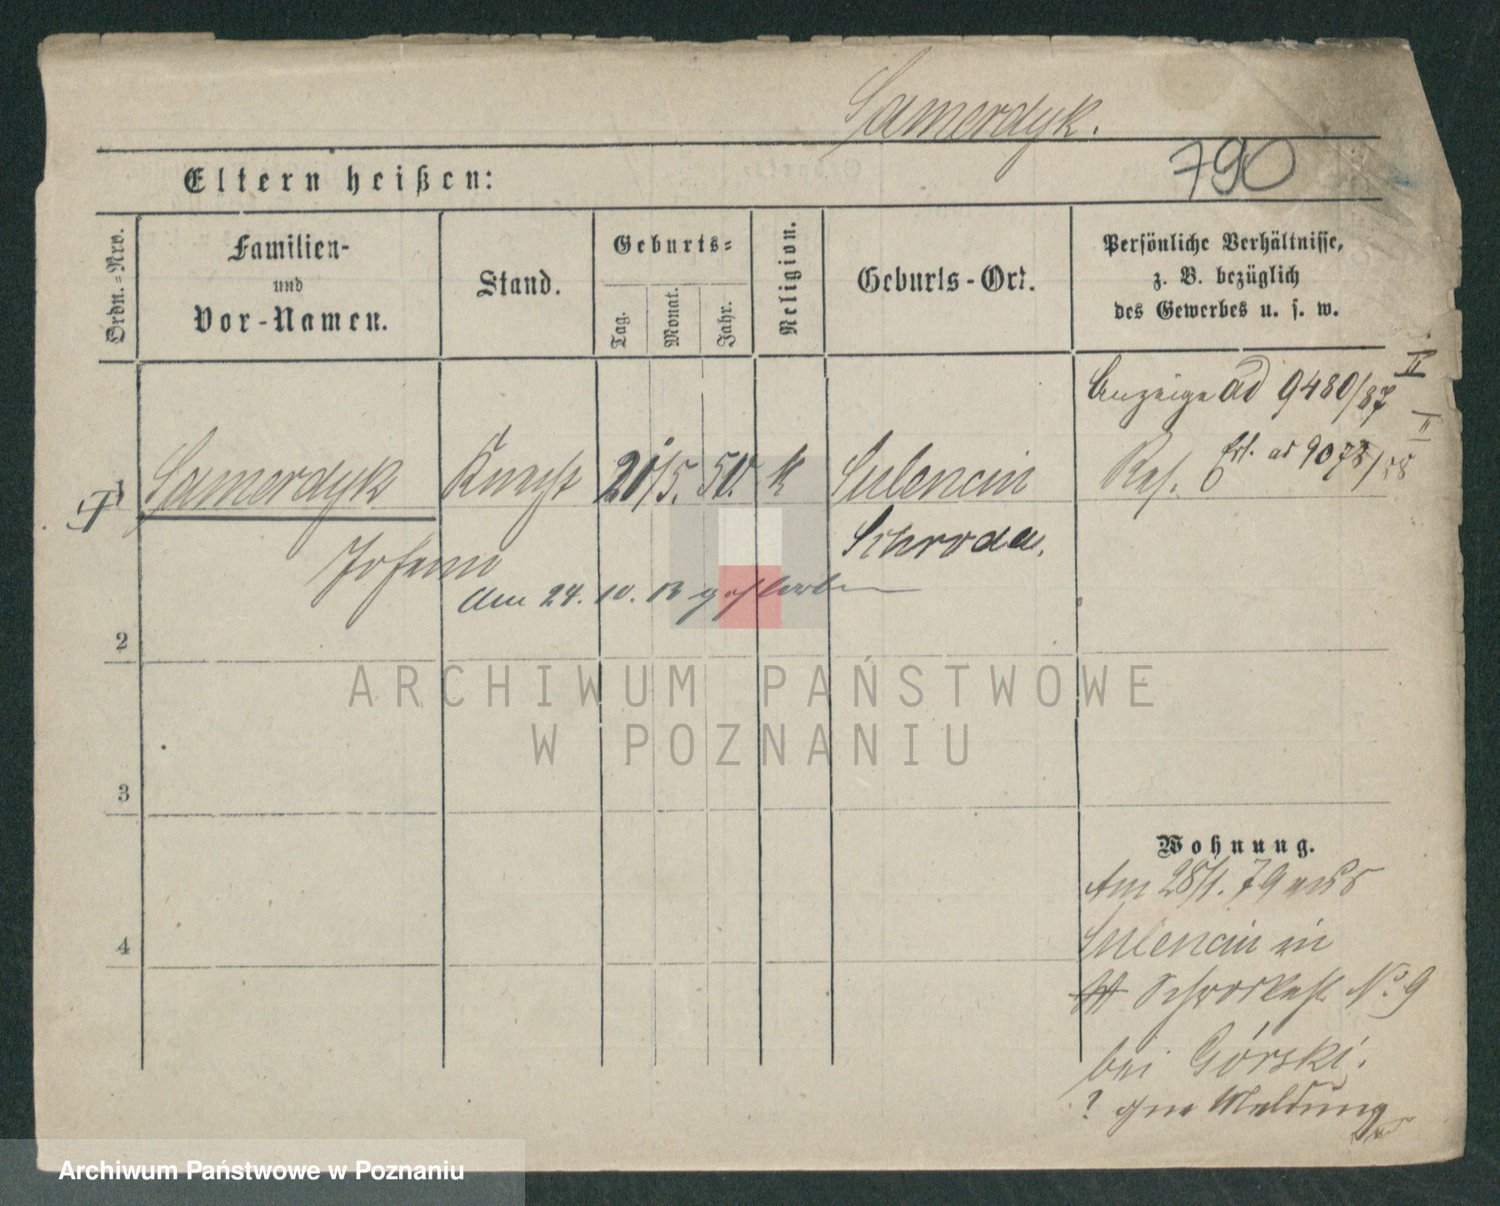 Samerdyk.
790
Eltern heißen:
Ordn.=Nro.
Familien-
und
Vor-Namen.
Stand.
Geburts=
Tag.
Monat.
Jahr.
Religion.
Geburts-Ort.
Persönliche Verhältnisse,
z. B. bezüglich
des Gewerbes u. s. w.
Anzeige ad 9480/87 II
Samerdyk Knecht 20/5. 50. k Sulencin
Ref. ad 9078/88 II
Schroda.
Am 24. 10. gestorben
2
3
4
Wohnung.
Am 28/1. 79 aus
Sulencin in
No 9
bei Górski.
? ohne Meldung
ARCHIWUM PAŃSTWOWE
W POZNANIU
Archiwum Państwowe w Poznaniu